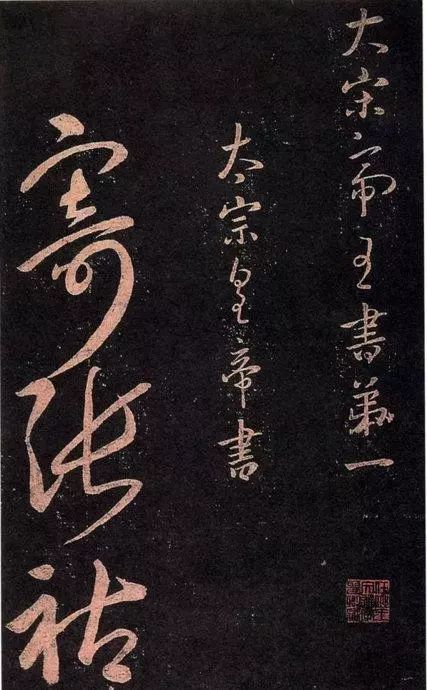 大宋帝王書第一
太宗皇帝書
寄張祜